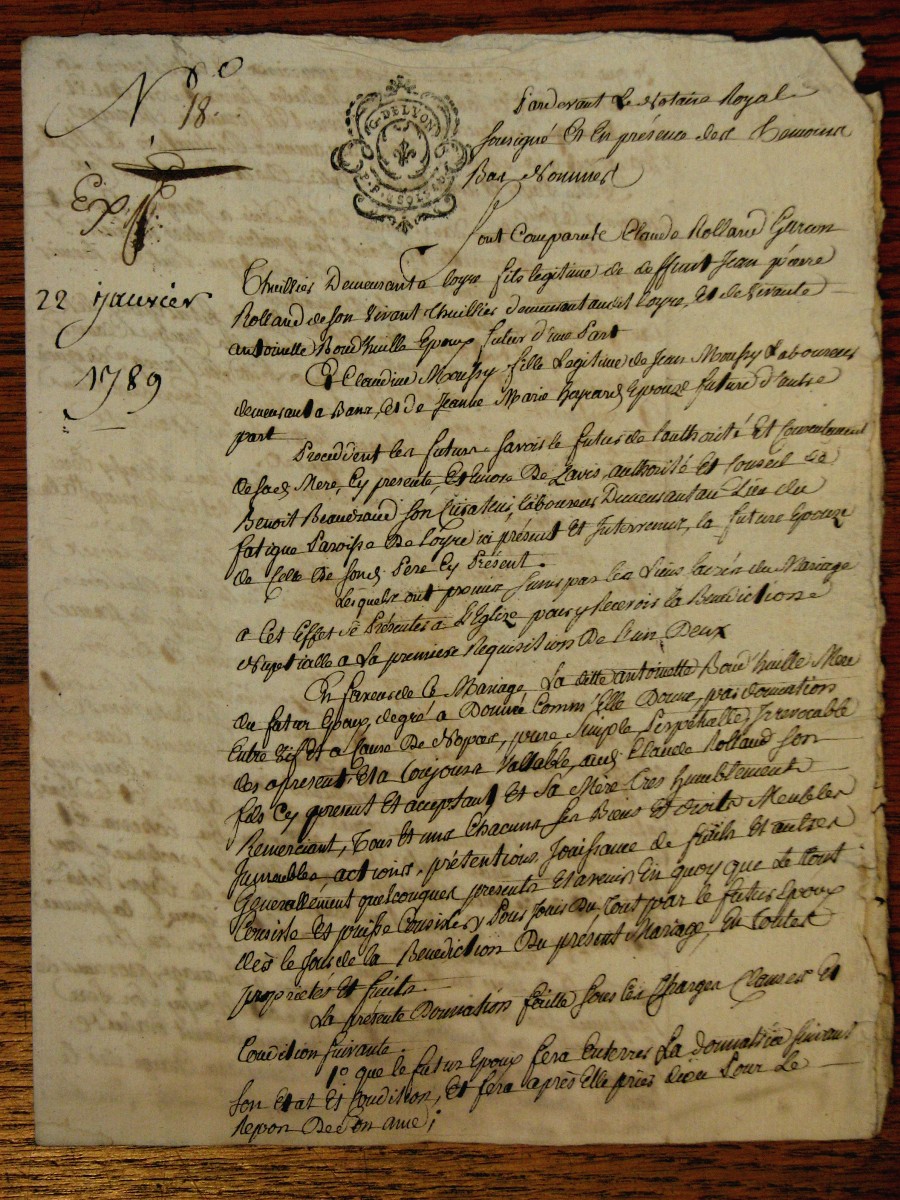 No
18.
Exp
22 janvier
1789
G. DE LYON
Pardevant Le Notaire Royal
soussigné Et En présence des Temoins
Bas Nommés
Sont Comparute Claude Rolland Garçon
Thuillier Demeurant a loyre fils legitime de deffunt Jean piérre
Rolland de son vivant thuillier demeurant audit Loyre, Et de vivante
antoinette Boud'huille Epoux futur d'une Part
Et Claudine Moussy fille Legitime de Jean Moussy Laboureur
demeurant a Banz, Et de Jeanne Marie Epouze future d'autre
part
Procedent les futurs savoir le futur de l'authorité Et Consentement
de sad. Mere, Cy presente, Et Encore De L'avis, authorité Et Conseil de
Benoit Beaudrand son Curateur, laboureur Demeurant au Lieu du
fatigue Paroisse De Loyre ici présent Et Intervenant, la future Epouze
de Celle De sond. Pere Cy Présent.
Lesquels ont promis s'unir par les Liens sacrés du Mariage
a Cet Effet se Présenter à L'Eglise pour y recevoir la Benediction
Nuptialle a La premiere Requisition De L'un Deux
En faveur de Ce Mariage, La ditte antoinette Boud'huille Mere
du futur Epoux, de gré a Donné Comm'Elle Donne, par donnation
Entre vif Et a Cause De Nopces, pure Simple Perpetuelle, Irrevocable
des apresent Et a toujours Vallable, aud. Claude Rolland son
fils Cy present Et acceptant Et Sa Mére tres humblement
Remerciant, Tous Et uns Chacuns ses Biens Et droits Meubles
Immeubles, actions, prétentions, Jouissance de fruits Et autres
Generallement quelconques presents Et avenir En quoy que Le tout
Consiste Et puisse Consister, Pour Jouir Du Tout par le futur Epoux
dès le Jour de la Benediction Du présent Mariage, En toutes
proprietés Et fruits.
La présente Donnation faitte sous les Charges Clauses Et
Condition suivante.
1º que le futur Epoux fera Enterrer La donnatrice suivant
son Etat Et Condition, Et fera après Elle prier dieu Pour Le
Repos De son ame;